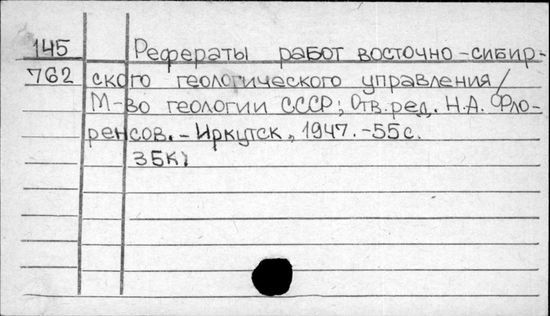 145 Рефераты работ восточно-сибир-
762 ского геологического управления /
М-во геологии СССР; Отв. ред. Н.А. Фло-
ренсов. - Иркутск, 1947. - 55с.
3БК1